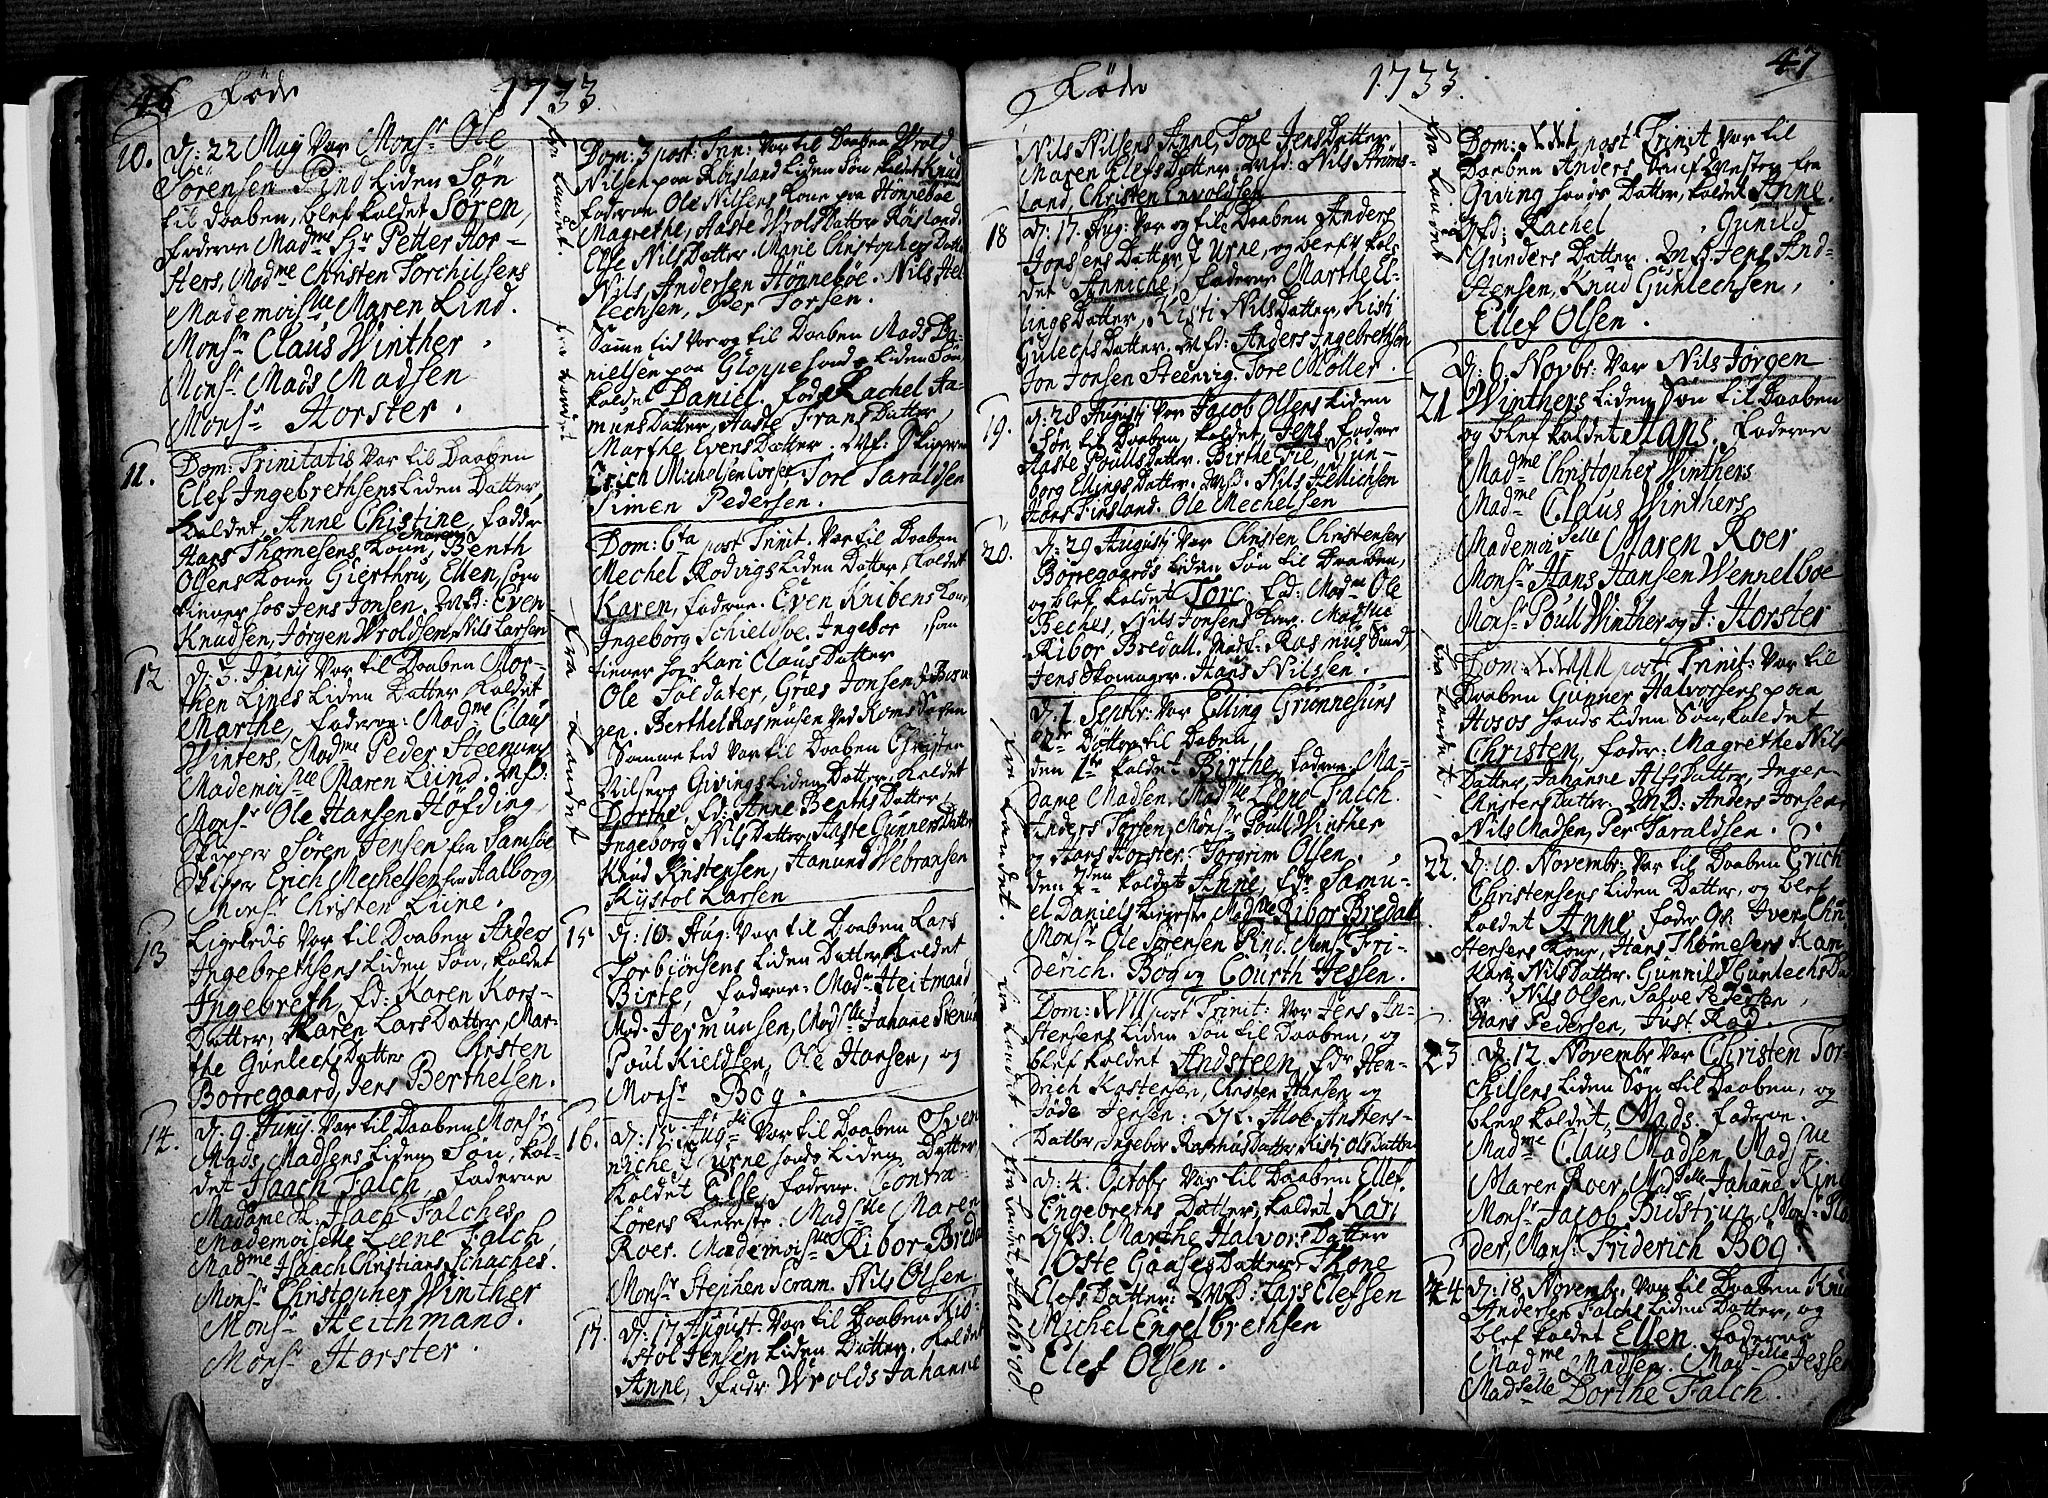 46 Føde 1733
10. D: 22 May Var Monsr Ole
Sörensen Pind Liden Søn
til Daaben, blef kaldet Søren,
fadderne Madme Hr Petter Hor-
sters, Madme Christen Torchilsens
Mademoiselle Maren Lind.
Monsr Claus Winther.
Monsr Mads Madsen
Monsr Horster.
11. Dom: Trinitatis Var til Daaben
Elef Ingebrethsens Liden Datter,
kaldet, Anne Christine, fadder
Hans Thomesens Kone Maren, Benth
Olsens Kone Gierthru, Ellen, som
tiener hos Jens Jonsen. Mfd: Even
Knudsen, Jörgen Wroldsen, Nils Larsen
12 D: 3. Junij Var til Daaben Mor-
then Lines Liden Datter kaldet
Marthe, fadderne: Madme Claus
Winters, Madme Peder Steenung
Mademoiselle Maren Lund. Mfd:
Monsr Ole Hansen Höfding,
Skipper Sören Jensen fra Samsöe
Skipper Erich Mechelsen fra Aalborg,
Monsr Christen Lune.
13 Ligeledis Var til Daaben Anders
Ingebrethsens Liden Søn, kaldet
Ingebreth, fd: Karen Kors-
Datter, Karen Lars Datter, Mar-
the Gunlechs Datter Chrsten
Borregaard, Jens Berthelsen.
14. D: 9. Junij. Var til Daaben Monsr
Mads Madsens Liden Søn, kal-
det Isaach Falch, fadderne
Madame H. Isach Falches
Mademoiselle Leene Falch,
Madme Isaach Christians Schaches.
Monsr Christopher Winther
Monsr Heithmand.
Monsr Horster.
fra Landet.
Dom: 3 post: Trin: Var til Daaben Wrold
Nilsen paa Røisland Liden Søn kaldet Knud
fadderne Ole Nilsens Kone paa Hönneböe
Magrethe, Aaste Wrols Datter Røisland,
Else Nils Datter. Marie Christophers Datter
Nils Andersen Hönneböe. Nils Hel-
lechsen, Per Torsen.
fra Landet
Samme tid Var og til Daaben Mads Da-
nielsen paa Gloppe hands Liden Søn,
kaldet Daniel. fadr Rachel Aa-
muns Datter, Aaste Frans Datter,
Marthe Evens Datter. Mf: Skipper
Erich Michelsen Corsør, Tore Taraldsen
Simen Pedersen.
Fra Landet
Dom: 6ta post Trinit. Var til Daaben
Mechel Rodvigs Liden Datter, kaldet
Karen, fadderne. Even Knibens Kone
Ingeborg Schieldsöe. Ingebor, som
tiener hos Kari Claus Datter
Ole Soldater, Gres Jonsen
gen. Berthel Rasmusen Ved
Samme tid Var til Daaben Christen
Nilsens Givings Liden Datter, kaldet
Dorthe, fd: Anne Benths Datter,
Ingeborg Nils Datter, Aaste Gunners Datter
Knud Kistensen, Aanund Webransen
Kystol Larsen
15 D: 10. Aug: Var til Daaben Lars
Torbiönsens Liden Datter, kaldet
Birte, fadderne: Madm Heitmand
Mad. Jermunsen, Madselle Johane Steenun
Poul Kieldsen, Ole Hansen, og
Monsr Bög.
16. D: 12 Augsti Var til Daaben Sven
niche i Urne hands Liden Datter
kaldet Else, fadderne. Contra
Lörers Kiereste: Madselle Maren
Roer. Mademoiselle Ribor Breda
Monsr Stephen Scram. Nils Olsen
17. D: 17 August. Var til Daaben Kis-
stol Jensen Liden Datter. kaldet
Anne, fadr: Wrolds Johanne
47
Føde 1733.
Nils Nilsens Anne, Tone Jens Datter,
Maren Elefs Datter. Mfd: Nils Strøms-
land, Christen Envoldsen
18 D: 17. Aug: Var og til Daaben Anders
Jonsens Datter i Urne, og blef kal-
det Anniche, fadderne Marthe El-
lings Datter, Kisti Nils Datter, Kisti
Gulechs Datter. Mfd: Anders Ingebrethsen
Jon Jonsen Steenvig. Tore Möller.
19. D: 28 Augusti Var Jacob Olsens Liden
Søn til Daaben, kaldet, Jens, faddr
Aaste Poulls Datter. Birthe Fie, Gun-
borg Ellings Datter. Mfd. Nils Michsen
Hans Finsland. Ole Mechelsen
20. D: 29 Augustj Var Christen Christensen
Borregaards Liden Søn til Daaben,
og blef kaldet Torc. fad: Madme Ole
Beches, Nils Jonsens Madselle
Ribor Bredall. Mdf: Rasmus Smid,
Jens Skomager. Hans Nilsen.
Fra Landet.
D: 1 Septbr: Var Elling Grönnesuns
2de Døttre til Daben
den 1te kaldet Birthe, fadderne. Ma-
dame Madsen, Madselle Leene Falch.
Anders Torsen, Monsr Poull Winther
og Hans Horster. Torgrim Olsen.
den 2den kaldet Anne, fdr Samu-
el Daniels kiereste Madselle Ribor Bredall
Monsr Ole Sörensen Pind. Monsr Fri-
derich. Bög og Courth Jessen.
fra Landet.
Dom: XVII post Trinit: Var Jens An-
stensens Liden Søn til Daaben, og
blef kaldet Andsteen, fdr Hen-
drich Kastensen, Christen Hansen og
Tøde Jensen: Qf. Aloe Anstens-
Datter, Ingebor Rasmus Datter Kisti Ols Datter
fra Landet, Aachrod.
D: 4. Octobr Var til Daaben Ellef.
Engebretens Datter, kaldet Kari
Qfd. Marthe Halvors Datter
Oste Gaases Datter, Thone
Elefs Datter: Mfd: Lars Elefsen
Michel Engelbrethsen
Elef Olsen.
fra Landet
Dom: XXI, post Trinit Var til
Daaben Anders fra
Giving hands Datter, kaldet Anne.
Qfd: Rachel, Gunild
Gunders Datter. Mfd. Jens And-
stensen, Knud Gunlechsen,
Ellef Olsen.
21 D: 6. Novbr: Var Nils Jörgen
Winthers Liden Søn til Daaben
og blef kaldet Hans. fadderne
Madme Christopher Winthers
Madme Claus Winthers
Mademoiselle Maren Roer
Monsr Hans Hansen Wennelboe
Monsr Poull Winther og J: Horster
fra Landet,
Dom: XXIIII post Trinit: Var til
Daaben Gunner Halvorsens paa
Hosos hands Liden Søn, kaldet
Christen, fadder: Magrethe Nils
Datter, Johanne Alfs Datter, Inger
Chrstens Datter. Mfd: Anders Jonsen
Nils Madsen, Per Taraldsen.
22. D: 10. Novembr: Var til Daaben Erich
Christensens Liden Datter, og blef
kaldet Anne, fader Qv. Iver Chri-
stensens Kone, Hans Thomesens Karen
Kari Nils Datter. Gunnild Gunlechs Dat-
ter: Nils Olsen, Salve Pedersen,
Hans Pedersen, Just Rad.
23 D: 12. Novembr Var Christen Tor-
chilsens Liden Søn til Daaben, og
blev kaldet, Mads. fadderne.
Madme Claus Madsen, Madselle
Maren Roer, Madselle Johane Kine
Monsr Jacob Bidstrup, Monsr
der, Monsr Friderich Bög.
24 D: 18 Novembr. Var til Daaben Knud
Andersen Falchs Liden Datter, og
blef kaldet Ellen. fadderne
Madme Madsen. Madselle Jessen
Madselle Dorthe Falch.